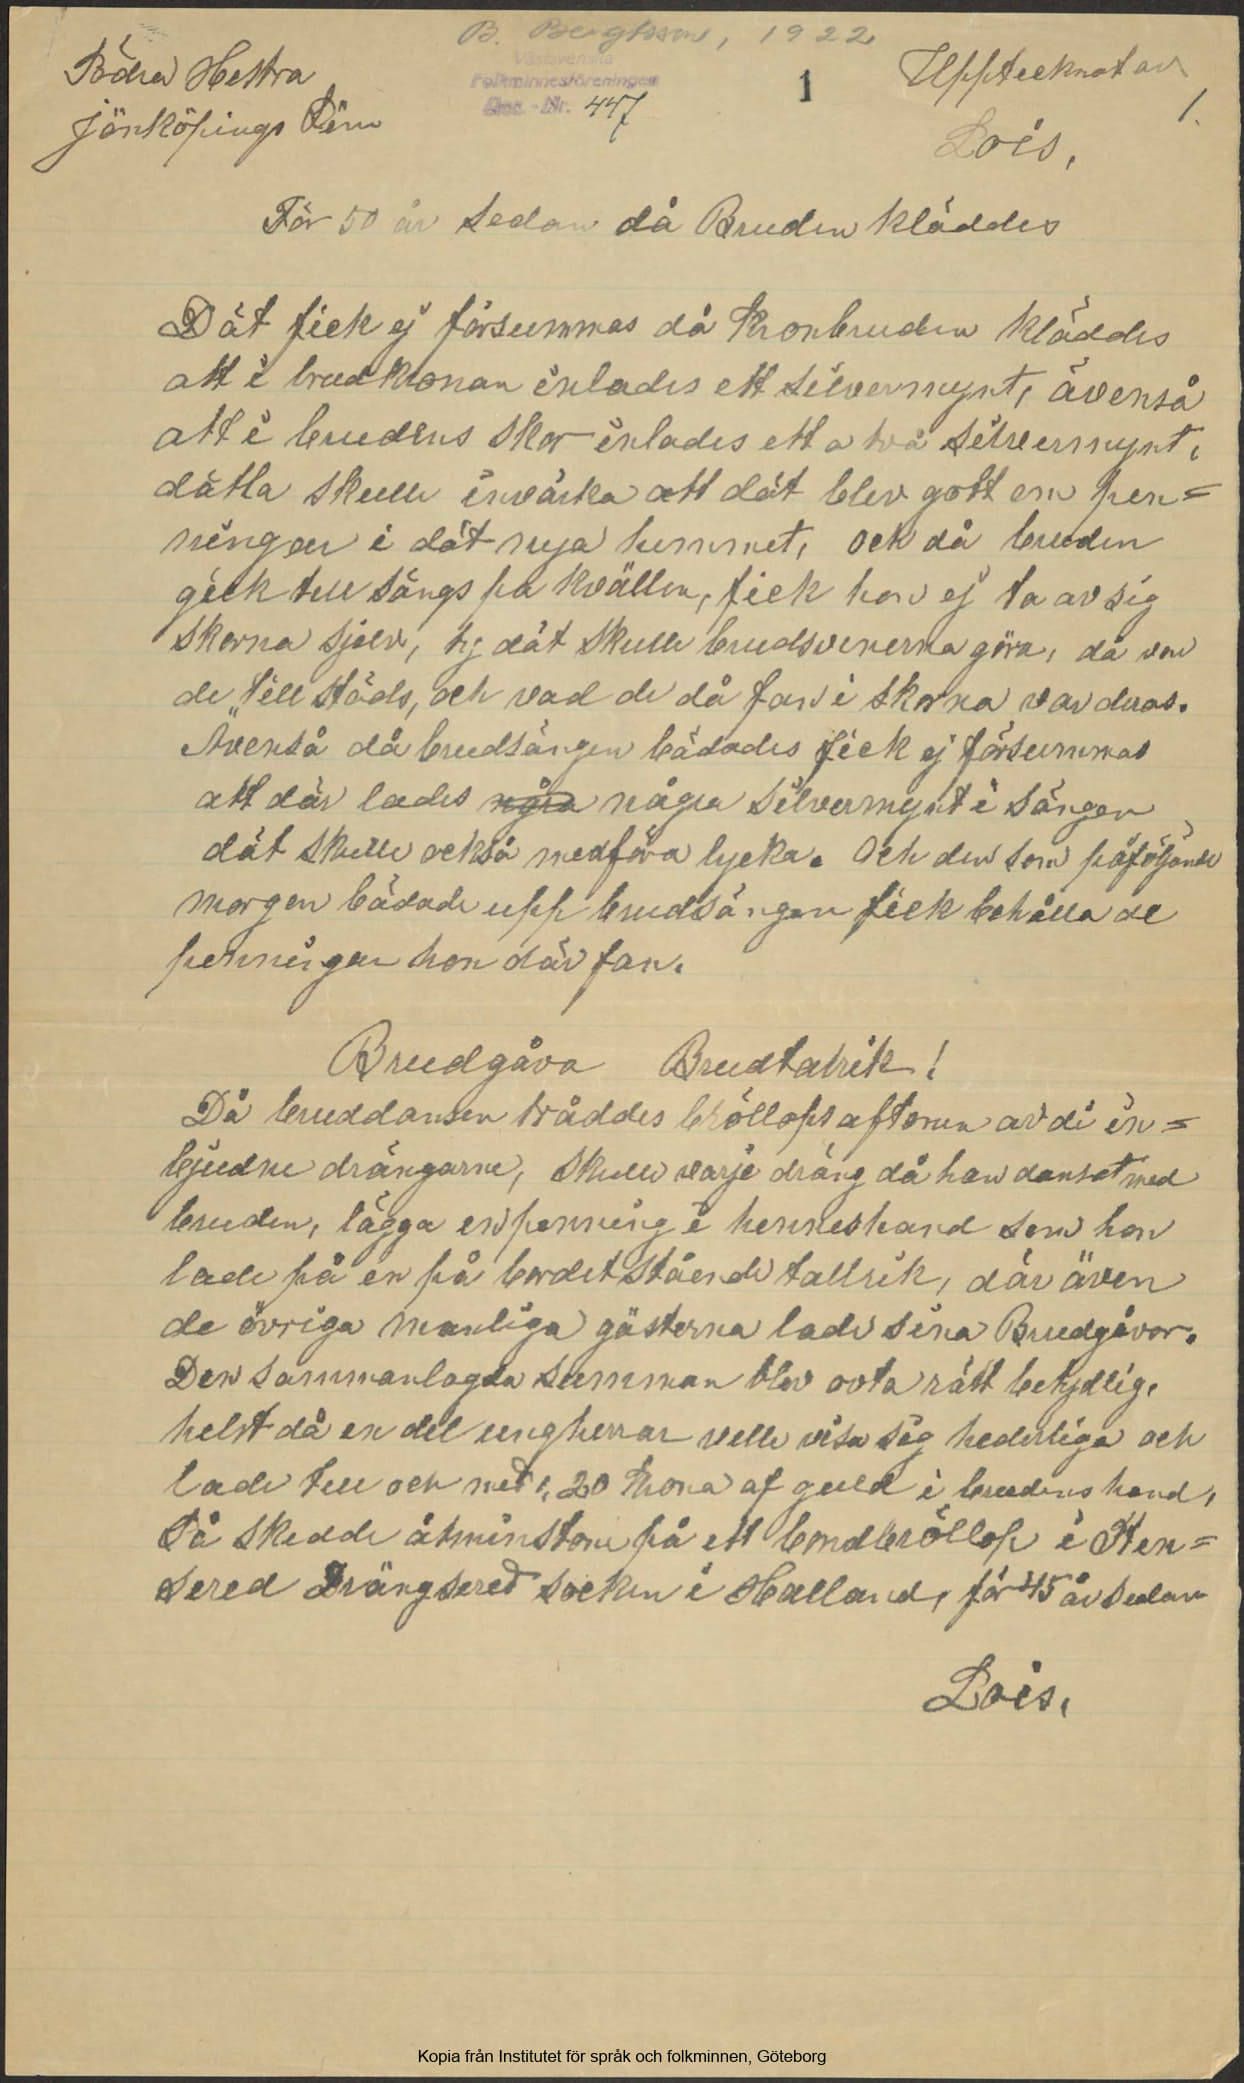 B. Bengtsson, 1922
Västsvenska
Folkminnesföreningen
Acc.-Nr. 447
Södra Hestra
Jönköpings Län
1
Uppteeknat av
1.
Lois,
För 50 år sedan då Bruden kläddes
Dät fick ej försummas då kronbruden kläddes
att i brudkronan inlades ett silvermynt, ävenså
att i brudens skor inlades ett a två silvermynt,
dätta skulle invärka att dät blev gott om pen=
ningar i dät nya hemmet, och då bruden
gick till sängs på kvällen, fick hon ej ta av sig
skorna sjelv, ty dät skulle brudsvenerna göra, då var
de till städs, och vad de då fan i skorna var deras.
Ävenså då brudsängen bäddades fick ej försummas
att där lades några några silvermynt i sängen
dät skulle också medföra lycka. Och den som påföljande
morgon bädade upp brudsängen fick behålla de
penningar hon där fan.
Brudgåva Brudtalrik!
Då bruddansen tråddes bröllopsaftonen av di in=
bjudne drängarne, skulle varje dräng då han dansat med
bruden, lägga en penning i hennes hand som hon
lade på en på bordet stående tallrik, där även
de övriga manliga gästerna lade sina Brudgåvor.
Den sammanlagda summan blev ovta rätt betydlig,
helst då en del ungherrar ville visa sig hederliga och
lade till och med, 20 krona af guld i brudens hand,
Så skedde åtminstone på ett bondbröllop i Hen=
sered Drängsered socken i Halland, för 45 år sedan
Lois,
Kopia från Institutet för språk och folkminnen, Göteborg